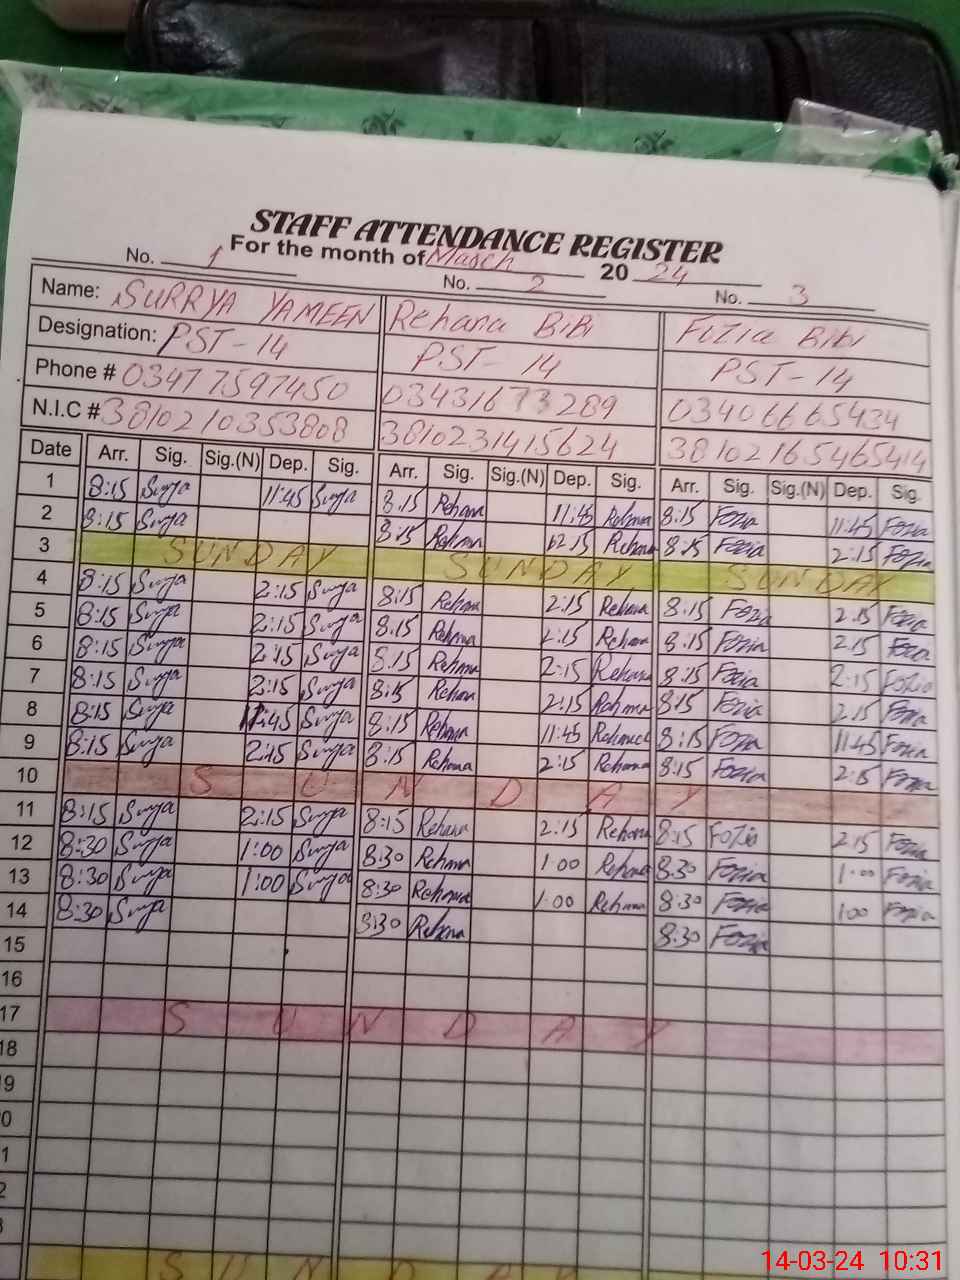 STAFF ATTENDANCE REGISTER
For the month of March 20 24
No. 1 No. 2 No. 3
Name: SURRYA YAMEEN Rehana BiBi Fozia Bibi
Designation: PST-14 PST-14 PST-14
Phone # 03477597450 03431673289 03406665434
N.I.C # 3810210353808 3810231415624 3810216546541 4
Date Arr. Sig. Sig.(N) Dep. Sig. Arr. Sig. Sig.(N) Dep. Sig. Arr. Sig. Sig.(N) Dep. Sig.
1 8:15 Surya 11:45 Surya 8:15 Rehana 11:45 Rehana 8:15 Fozia 11:45 Fozia
2 8:15 Surya 8:15 Rehana 2:15 Rehana 8:15 Fozia 2:15 Fozia
3 SUNDAY SUNDAY SUNDAY
4 8:15 Surya 2:15 Surya 8:15 Rehana 2:15 Rehana 8:15 Fozia 2:15 Fozia
5 8:15 Surya 2:15 Surya 8:15 Rehana 2:15 Rehana 8:15 Fozia 2:15 Fozia
6 8:15 Surya 2:15 Surya 8:15 Rehana 2:15 Rehana 8:15 Fozia 2:15 Fozia
7 8:15 Surya 2:15 Surya 8:15 Rehana 2:15 Rehana 8:15 Fozia 2:15 Fozia
8 8:15 Surya 11:45 Surya 8:15 Rehana 11:45 Rehana 8:15 Fozia 11:45 Fozia
9 8:15 Surya 2:15 Surya 8:15 Rehana 2:15 Rehana 8:15 Fozia 2:15 Fozia
10 SUNDAY
11 8:15 Surya 2:15 Surya 8:15 Rehana 2:15 Rehana 8:15 Fozia 2:15 Fozia
12 8:30 Surya 1:00 Surya 8:30 Rehana 1:00 Rehana 8:30 Fozia 1:00 Fozia
13 8:30 Surya 1:00 Surya 8:30 Rehana 1:00 Rehana 8:30 Fozia 1:00 Fozia
14 8:30 Surya 8:30 Rehana 8:30 Fozia
15
16
17 SUNDAY
18
9
0
1
2
3
SUNDAY
14-03-24 10:31